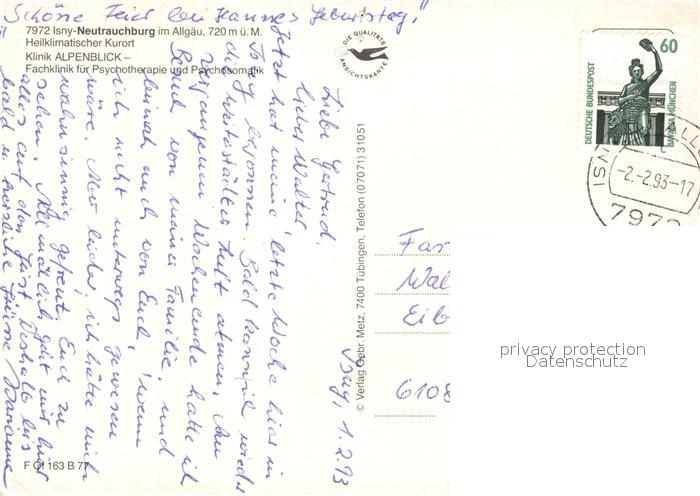 Schöne Feier bei Hannes Geburtstag!
7972 Isny-Neutrauchburg im Allgäu, 720 m ü. M.
Heilklimatischer Kurort
Klinik ALPENBLICK –
Fachklinik für Psychotherapie und Psychosomatik
DIE QUALITÄTS
ANSICHTSKARTE
60
DEUTSCHE BUNDESPOST
BAVARIA MÜNCHEN
-2.-2.93-17
ISNY
7972
Isny, 1.2.93
Liebe Gertrud,
lieber Walter
Jetzt hat meine letzte Woche hier in
Isny begonnen. Bald kann ich wieder
die Luft atmen. Am
vergangenen Wochenende hatte ich
Besuch von meiner Familie, und
beinah auch von Euch, wenn
ich nicht unterwegs gewesen
wäre. Aber leider, ich hätte mich
wahnsinnig gefreut, Euch zu
sehen. Allmählich geht mir hier
alles auf den Geist. Deshalb bis
bald u. herzliche Grüsse Marianne
© Verlag Gebr. Metz, 7400 Tübingen, Telefon (07071) 31051
Fam
Wal
Eib
6108
privacy protection
Datenschutz
F Of 163 B 77